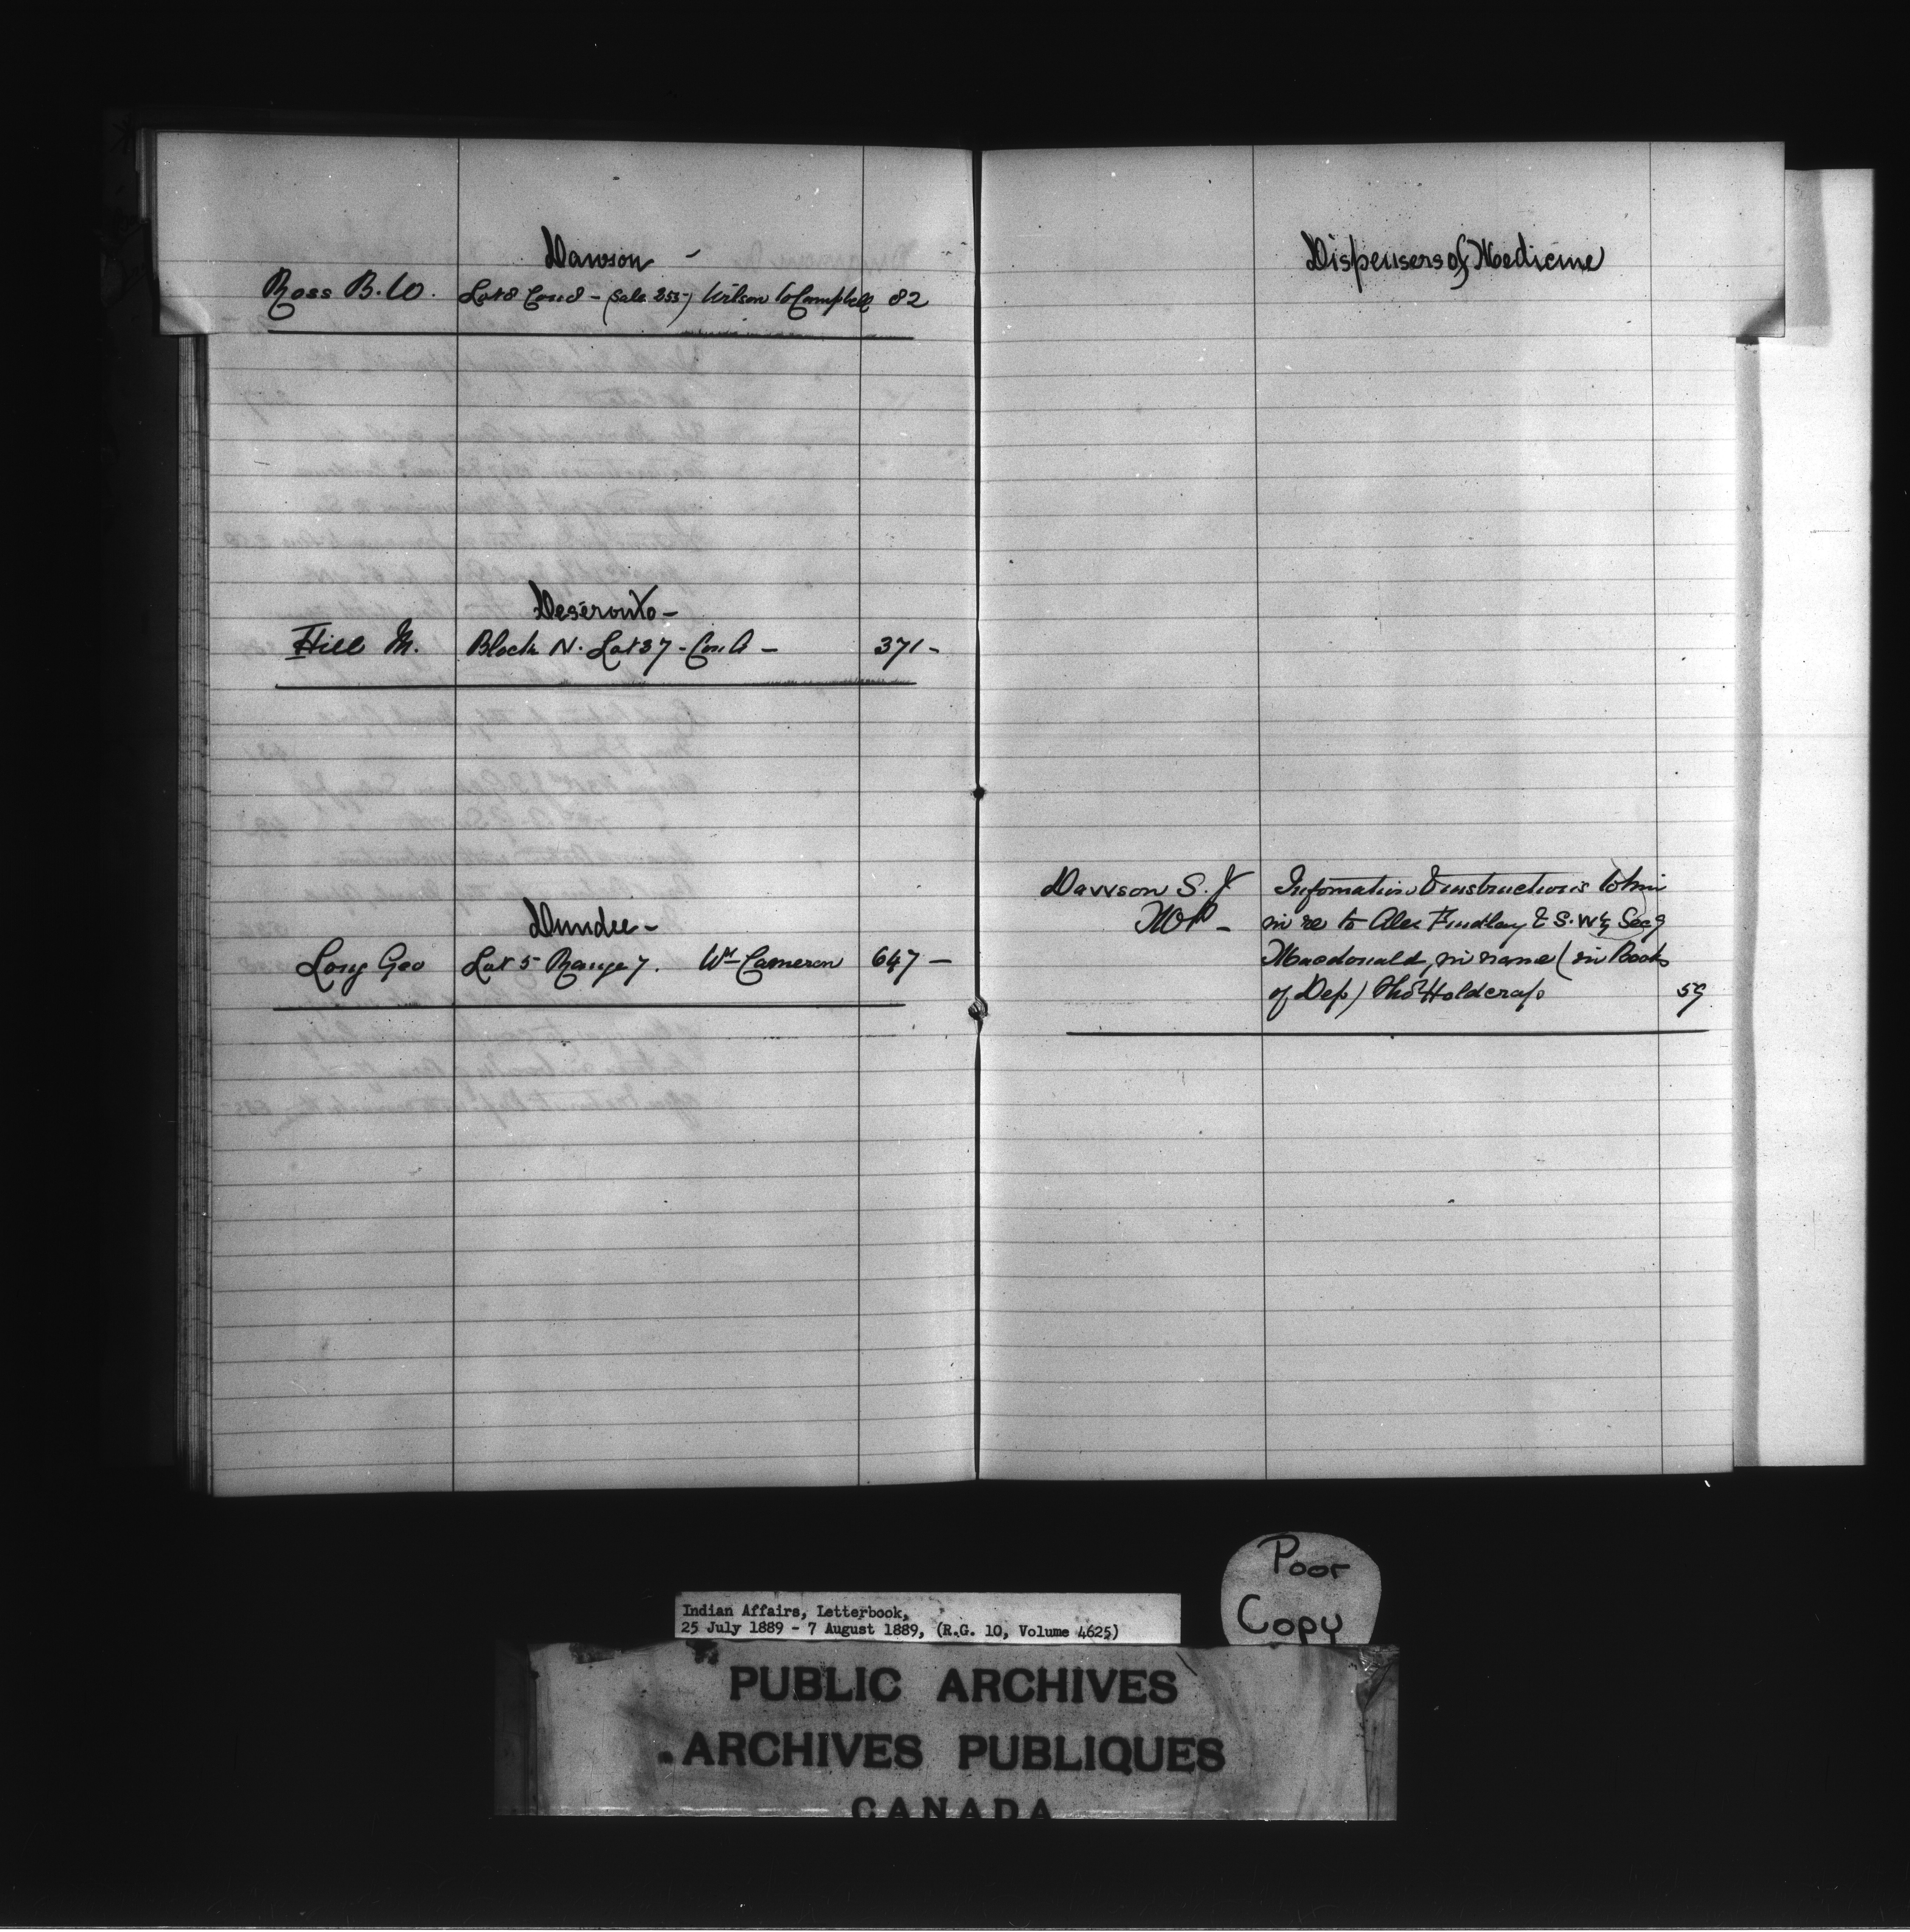 Dawson -
Ross B. W. Lot 8 Con 8 - (Sale 255-) Wilson to Campbell 82
Deseronto -
Hill M. Block N. Lot 37 - Con. A - 371 -
Dundee -
Long Geo Lot 5 Range 7. Wm Cameron 647 -
Dispensers of Medicine
Dawson S. J. Infomation & instructions to him
M P - in re to Alex Findlay & S. W 1/4 Sec 9
Macdonald, in name (in Books
of Dep) Thos Holdcraft 59
Poor
Copy
Indian Affairs, Letterbook,
25 July 1889 - 7 August 1889, (R.G. 10, Volume 4625)
PUBLIC ARCHIVES
ARCHIVES PUBLIQUES
CANADA